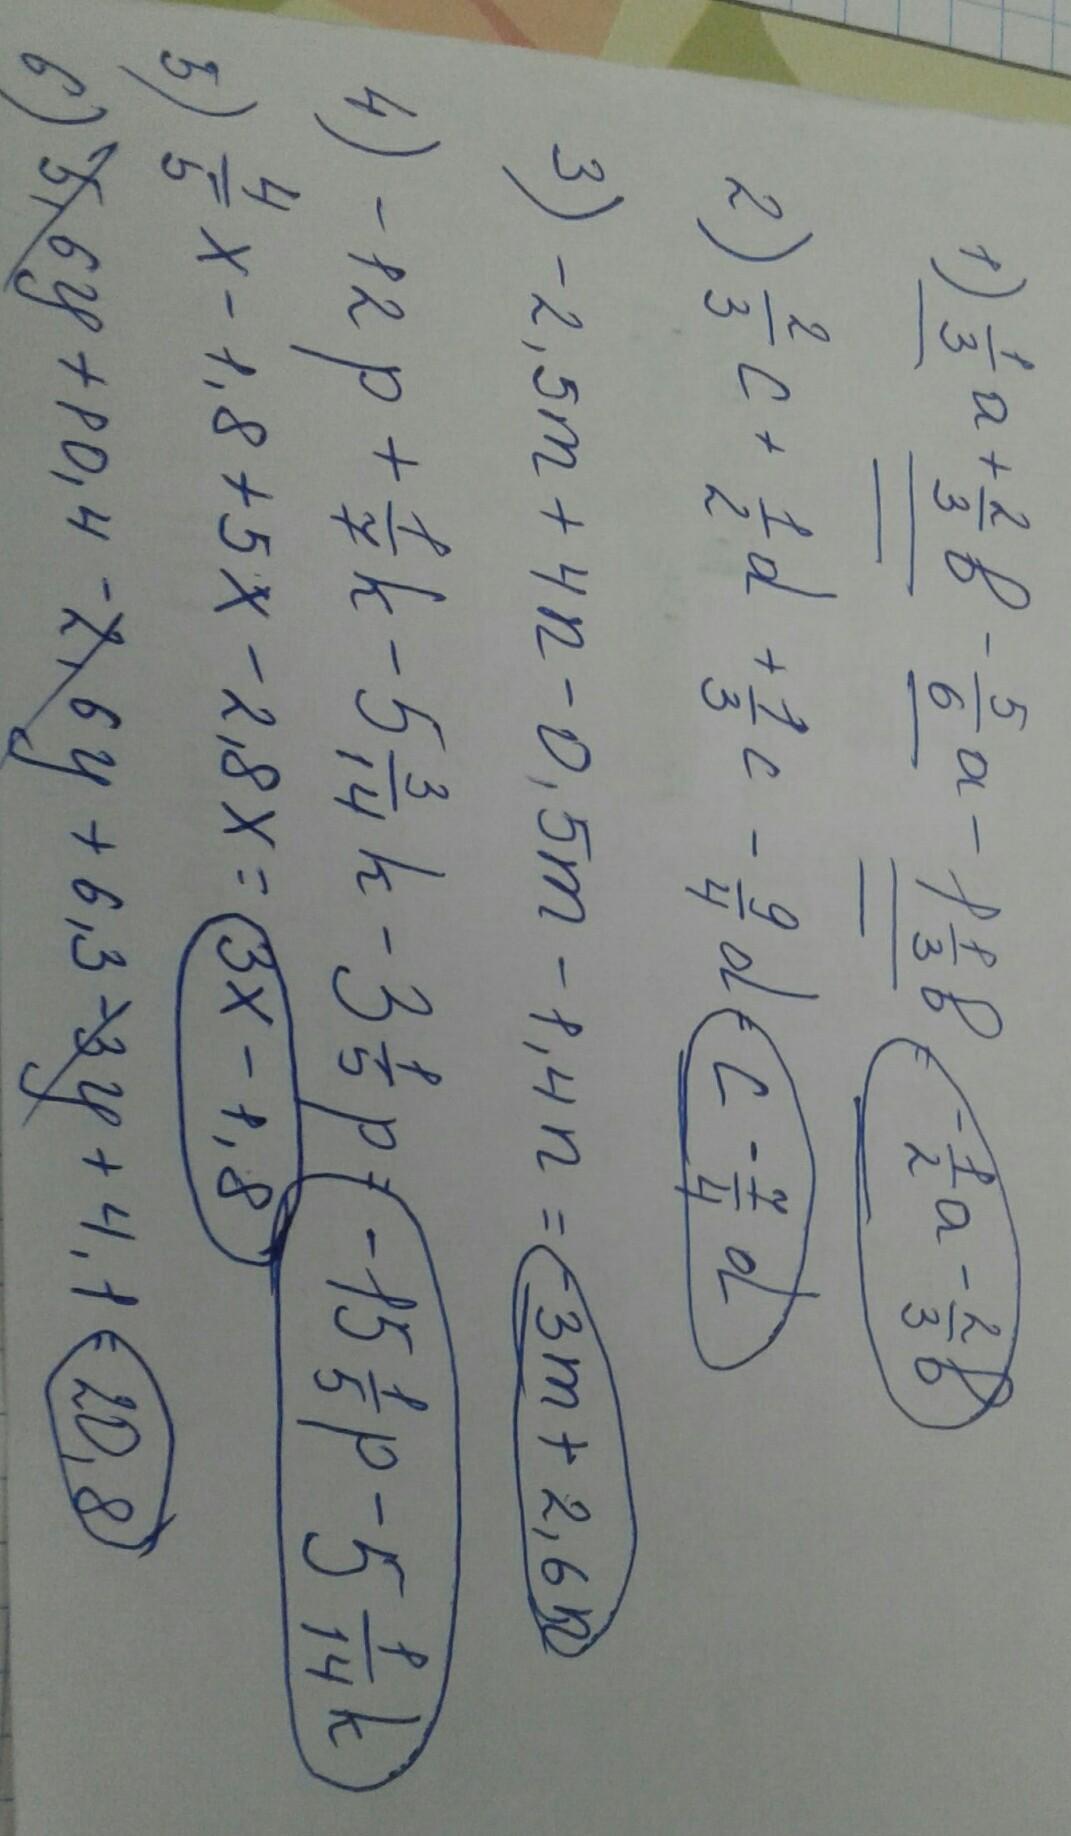 1) 1/3 a + 2/3 b - 5/6 a - 1 1/3 b = -1/2 a - 2/3 b
2) 2/3 c + 1/2 d + 1/3 c - 9/4 d = c - 7/4 d
3) -2,5m + 4n - 0,5m - 1,4n = -3m + 2,6n
4) -12p + 1/7 k - 5 3/14 k - 3 1/5 p = -15 1/5 p - 5 1/14 k
5) 4/5 x - 1,8 + 5x - 2,8x = 3x - 1,8
6) 5,6y + 10,4 - 2,6y + 6,3 - 3y + 4,1 = 20,8